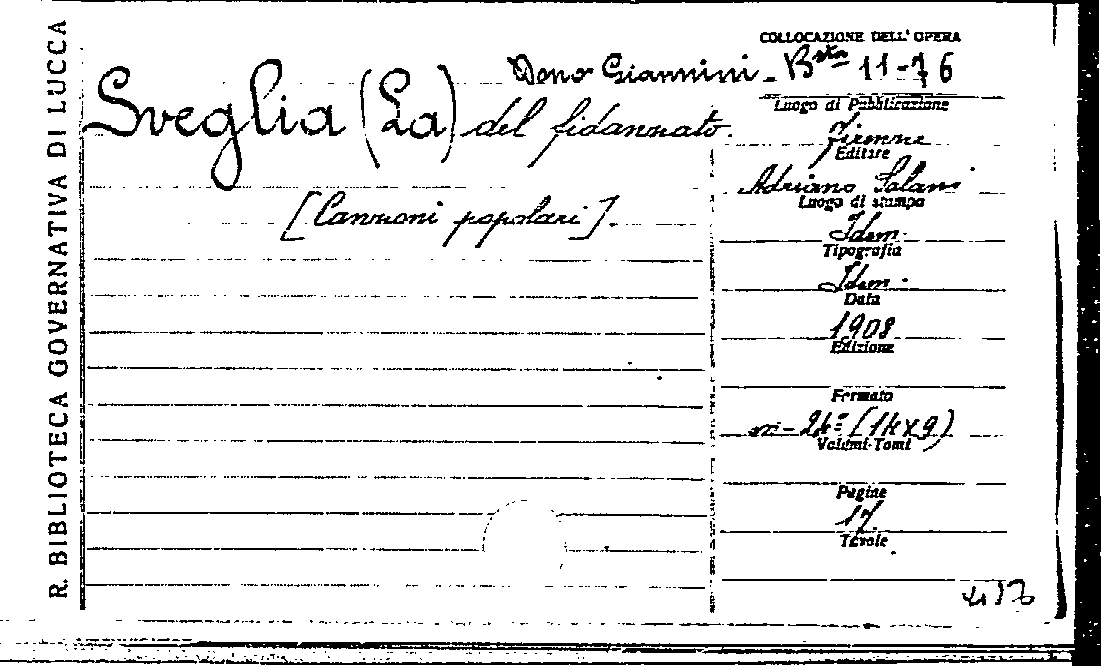 R. BIBLIOTECA GOVERNATIVA DI LUCCA
COLLOCAZIONE DELL' OPERA
Dono Giannini - Bsta 11-76
Sveglia (La) del fidannato.
[Cannoni popolari].
Luogo di Pubblicazione
Firenne
Editore
Adriano Salani
Luogo di stampa
Idem.
Tipografia
Idem.
Data
1908
Edizione
Formato
in-24º (14x9)
Volumi-Tomi
Pagine
17
Tavole